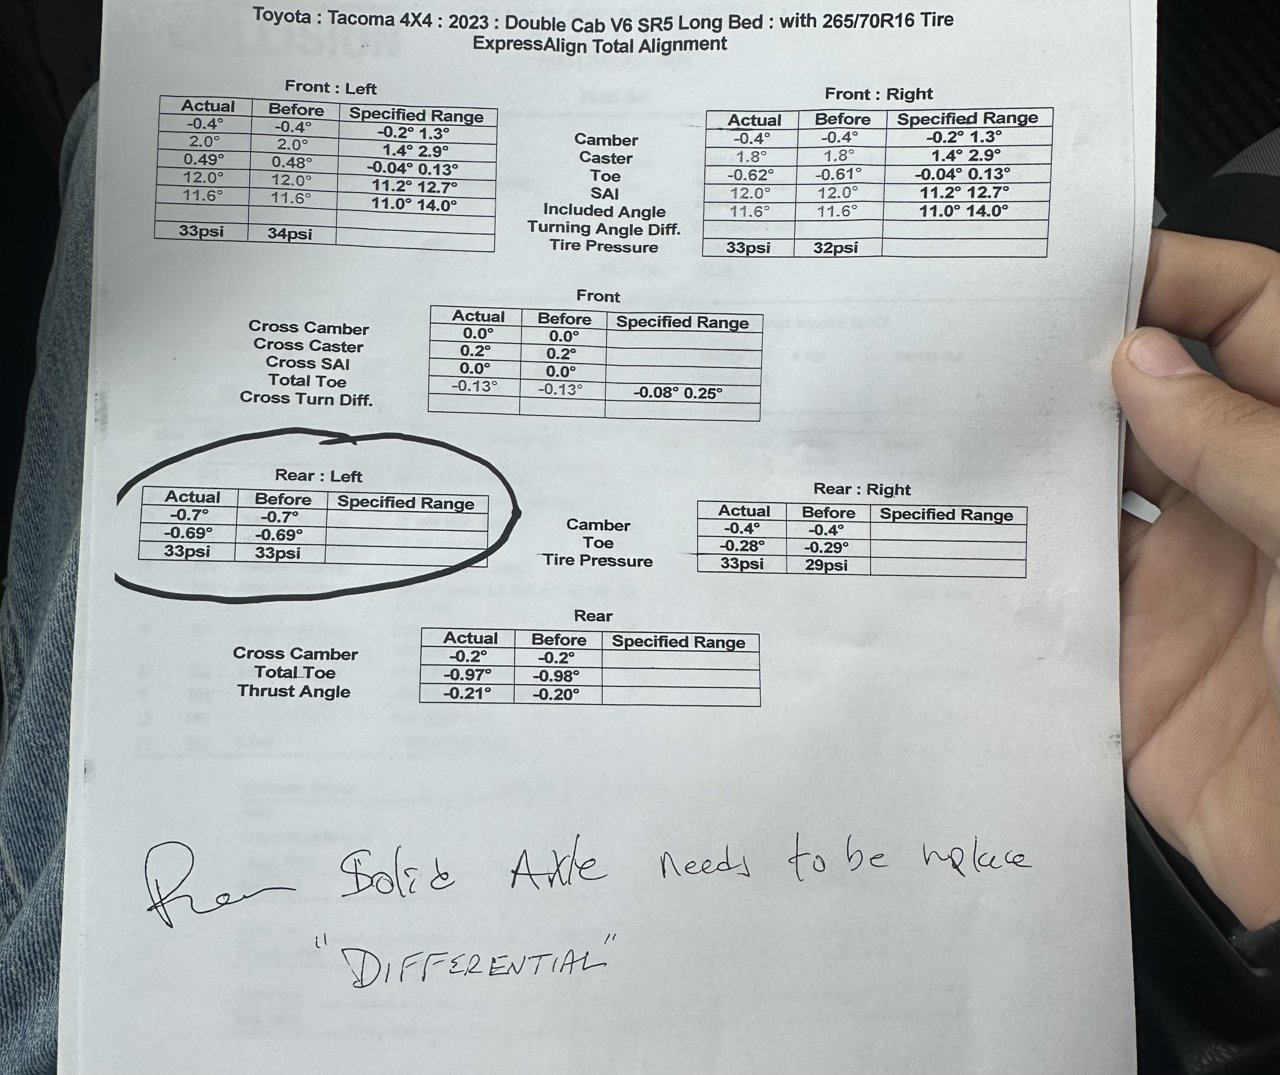 Toyota : Tacoma 4X4 : 2023 : Double Cab V6 SR5 Long Bed : with 265/70R16 Tire
ExpressAlign Total Alignment
Front : Left
Actual Before Specified Range
-0.4° -0.4° -0.2° 1.3°
2.0° 2.0° 1.4° 2.9°
0.49° 0.48° -0.04° 0.13°
12.0° 12.0° 11.2° 12.7°
11.6° 11.6° 11.0° 14.0°
33psi 34psi
Camber
Caster
Toe
SAI
Included Angle
Turning Angle Diff.
Tire Pressure
Front : Right
Actual Before Specified Range
-0.4° -0.4° -0.2° 1.3°
1.8° 1.8° 1.4° 2.9°
-0.62° -0.61° -0.04° 0.13°
12.0° 12.0° 11.2° 12.7°
11.6° 11.6° 11.0° 14.0°
33psi 32psi
Front
Actual Before Specified Range
Cross Camber 0.0° 0.0°
Cross Caster 0.2° 0.2°
Cross SAI 0.0° 0.0°
Total Toe -0.13° -0.13° -0.08° 0.25°
Cross Turn Diff.
Rear : Left
Actual Before Specified Range
-0.7° -0.7°
-0.69° -0.69°
33psi 33psi
Camber
Toe
Tire Pressure
Rear : Right
Actual Before Specified Range
-0.4° -0.4°
-0.28° -0.29°
33psi 29psi
Rear
Actual Before Specified Range
Cross Camber -0.2° -0.2°
Total Toe -0.97° -0.98°
Thrust Angle -0.21° -0.20°
Rear Solid Axle needs to be replace
"DIFFERENTIAL"